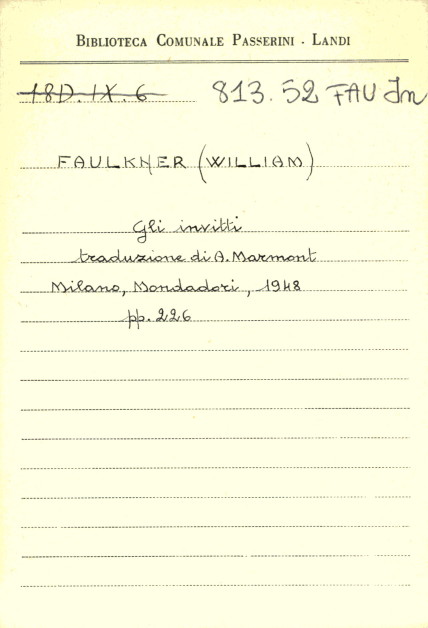 BIBLIOTECA COMUNALE PASSERINI - LANDI
18D.IX.6 813.52 FAU In
FAULKNER (WILLIAM)
Gli invitti
traduzione di A. Marmont
Milano, Mondadori, 1948
pp. 226